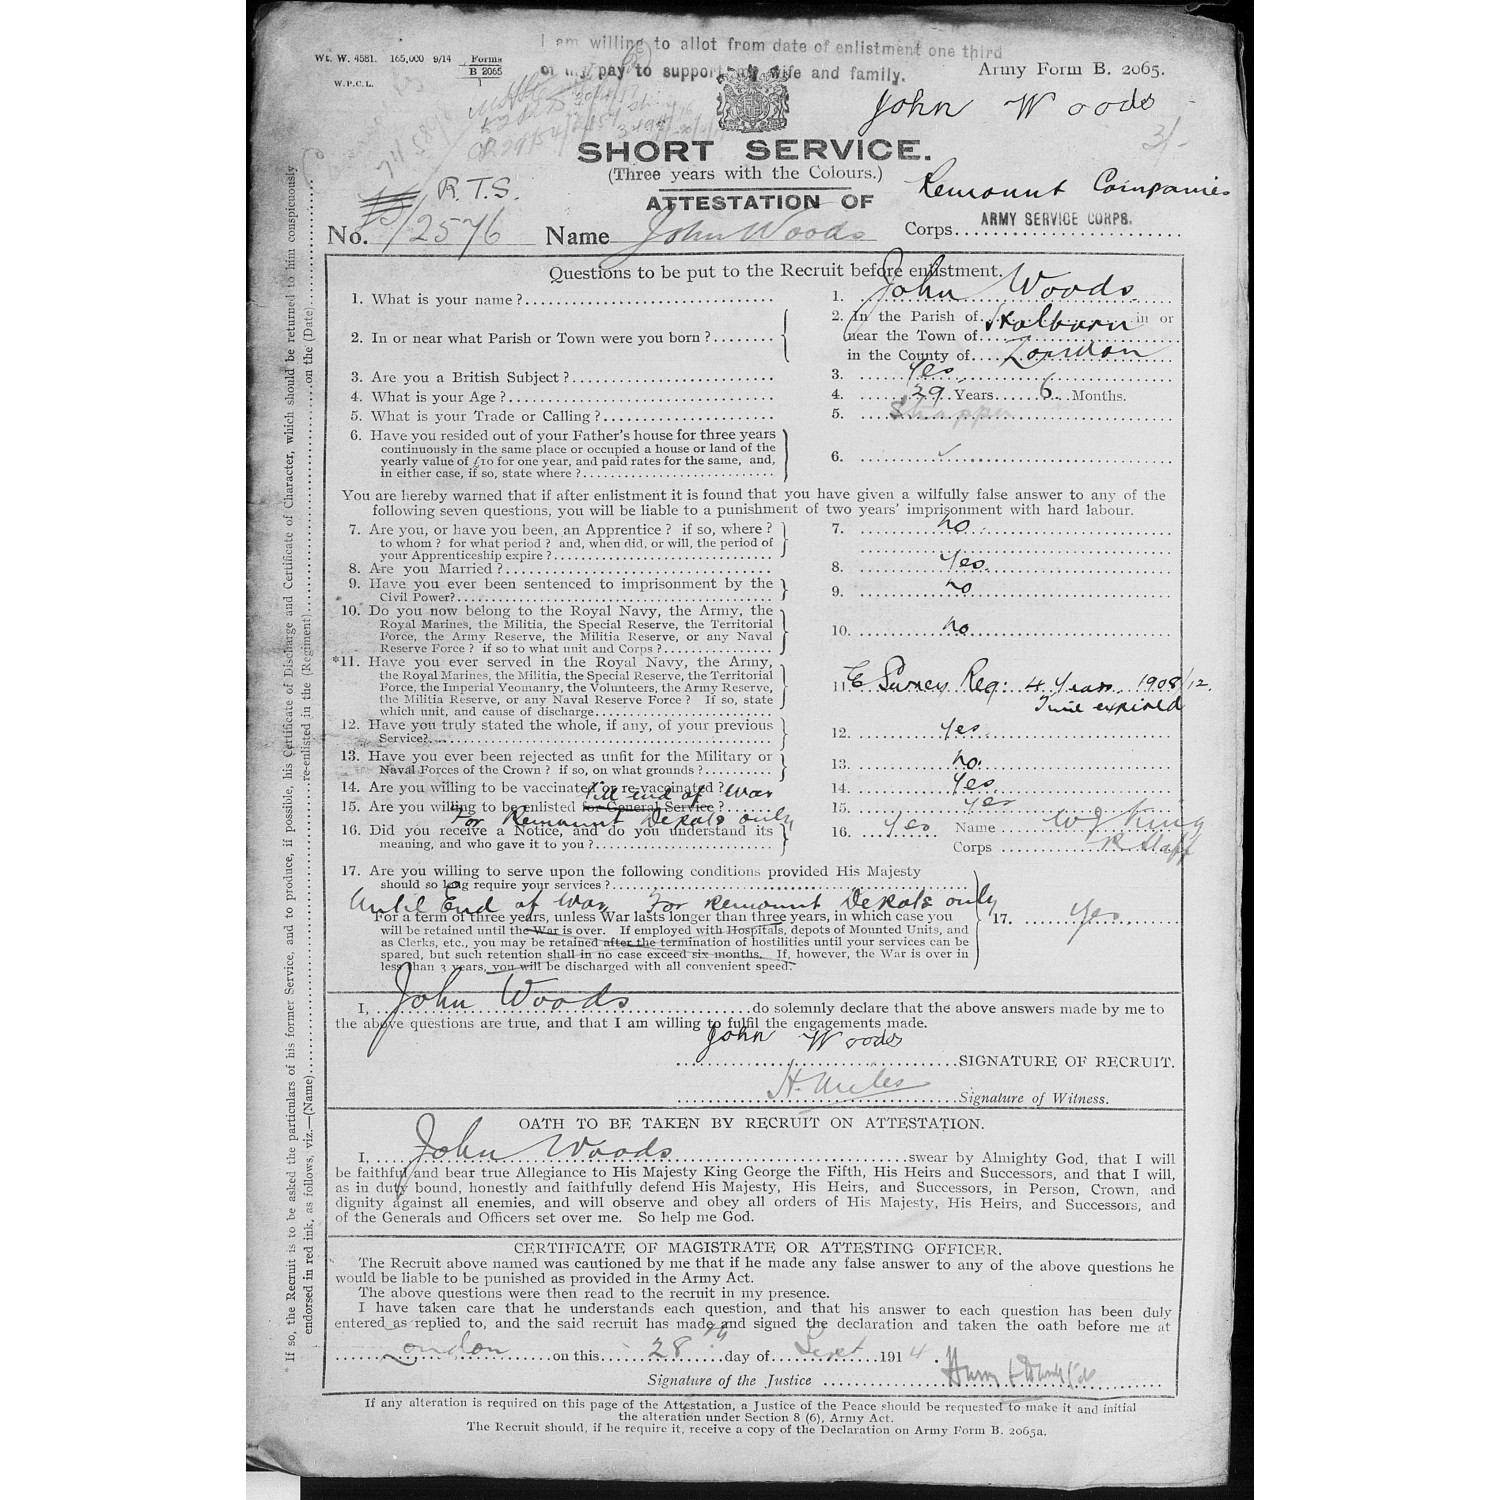 I am willing to allot from date of enlistment one third
of my pay to support my wife and family.
Wt. W. 4581. 165,000 9/14 Forms B 2065 1
W.P.C.L.
Army Form B. 2065.
John Woods
3/-
SHORT SERVICE.
(Three years with the Colours.)
Remount Companies
R.T.S.
ATTESTATION OF
ARMY SERVICE CORPS.
No. /2576 Name John Woods Corps
Questions to be put to the Recruit before enlistment.
1. What is your name? 1. John Woods
2. In or near what Parish or Town were you born? 2. In the Parish of Holborn in or
near the Town of
in the County of London
3. Are you a British Subject? 3. Yes
4. What is your Age? 4. 29 Years 6 Months.
5. What is your Trade or Calling? 5.
6. Have you resided out of your Father's house for three years
continuously in the same place or occupied a house or land of the
yearly value of £10 for one year, and paid rates for the same, and,
in either case, if so, state where? 6. ✓
You are hereby warned that if after enlistment it is found that you have given a wilfully false answer to any of the
following seven questions, you will be liable to a punishment of two years' imprisonment with hard labour.
7. Are you, or have you been, an Apprentice? if so, where? 7. no
to whom? for what period? and, when did, or will, the period of
your Apprenticeship expire?
8. Are you Married? 8. Yes
9. Have you ever been sentenced to imprisonment by the
Civil Power? 9. no
10. Do you now belong to the Royal Navy, the Army, the
Royal Marines, the Militia, the Special Reserve, the Territorial
Force, the Army Reserve, the Militia Reserve, or any Naval
Reserve Force? if so to what unit and Corps? 10. no
*11. Have you ever served in the Royal Navy, the Army,
the Royal Marines, the Militia, the Special Reserve, the Territorial
Force, the Imperial Yeomanry, the Volunteers, the Army Reserve,
the Militia Reserve, or any Naval Reserve Force? If so, state
which unit, and cause of discharge 11. E Surrey Reg: 4 Years 1908/12.
Time expired
12. Have you truly stated the whole, if any, of your previous
Service? 12. Yes
13. Have you ever been rejected as unfit for the Military or
Naval Forces of the Crown? if so, on what grounds? 13. no.
14. Are you willing to be vaccinated or re-vaccinated? 14. Yes
Till end of War
15. Are you willing to be enlisted for General Service? 15. Yes
For Remount Depots only
16. Did you receive a Notice, and do you understand its
meaning, and who gave it to you? 16. Yes Name W J King
Corps R Staff
17. Are you willing to serve upon the following conditions provided His Majesty
should so long require your services?
Until End of War For Remount Depots only
For a term of three years, unless War lasts longer than three years, in which case you
will be retained until the War is over. If employed with Hospitals, depots of Mounted Units, and
as Clerks, etc., you may be retained after the termination of hostilities until your services can be
spared, but such retention shall in no case exceed six months. If, however, the War is over in
less than 3 years, you will be discharged with all convenient speed. 17. Yes
I, John Woods do solemnly declare that the above answers made by me to
the above questions are true, and that I am willing to fulfil the engagements made.
John Woods SIGNATURE OF RECRUIT.
H. Miles Signature of Witness.
OATH TO BE TAKEN BY RECRUIT ON ATTESTATION.
I, John Woods swear by Almighty God, that I will
be faithful and bear true Allegiance to His Majesty King George the Fifth, His Heirs and Successors, and that I will,
as in duty bound, honestly and faithfully defend His Majesty, His Heirs, and Successors, in Person, Crown, and
dignity against all enemies, and will observe and obey all orders of His Majesty, His Heirs, and Successors, and
of the Generals and Officers set over me. So help me God.
CERTIFICATE OF MAGISTRATE OR ATTESTING OFFICER.
The Recruit above named was cautioned by me that if he made any false answer to any of the above questions he
would be liable to be punished as provided in the Army Act.
The above questions were then read to the recruit in my presence.
I have taken care that he understands each question, and that his answer to each question has been duly
entered as replied to, and the said recruit has made and signed the declaration and taken the oath before me at
London on this 28th day of Sept 1914.
Signature of the Justice
If any alteration is required on this page of the Attestation, a Justice of the Peace should be requested to make it and initial
the alteration under Section 8 (6), Army Act.
The Recruit should, if he require it, receive a copy of the Declaration on Army Form B. 2065a.
* If so, the Recruit is to be asked the particulars of his former Service, and to produce, if possible, his Certificate of Discharge and Certificate of Character, which should be returned to him conspicuously
endorsed in red ink, as follows, viz.—(Name) re-enlisted in the (Regiment) on the (Date)